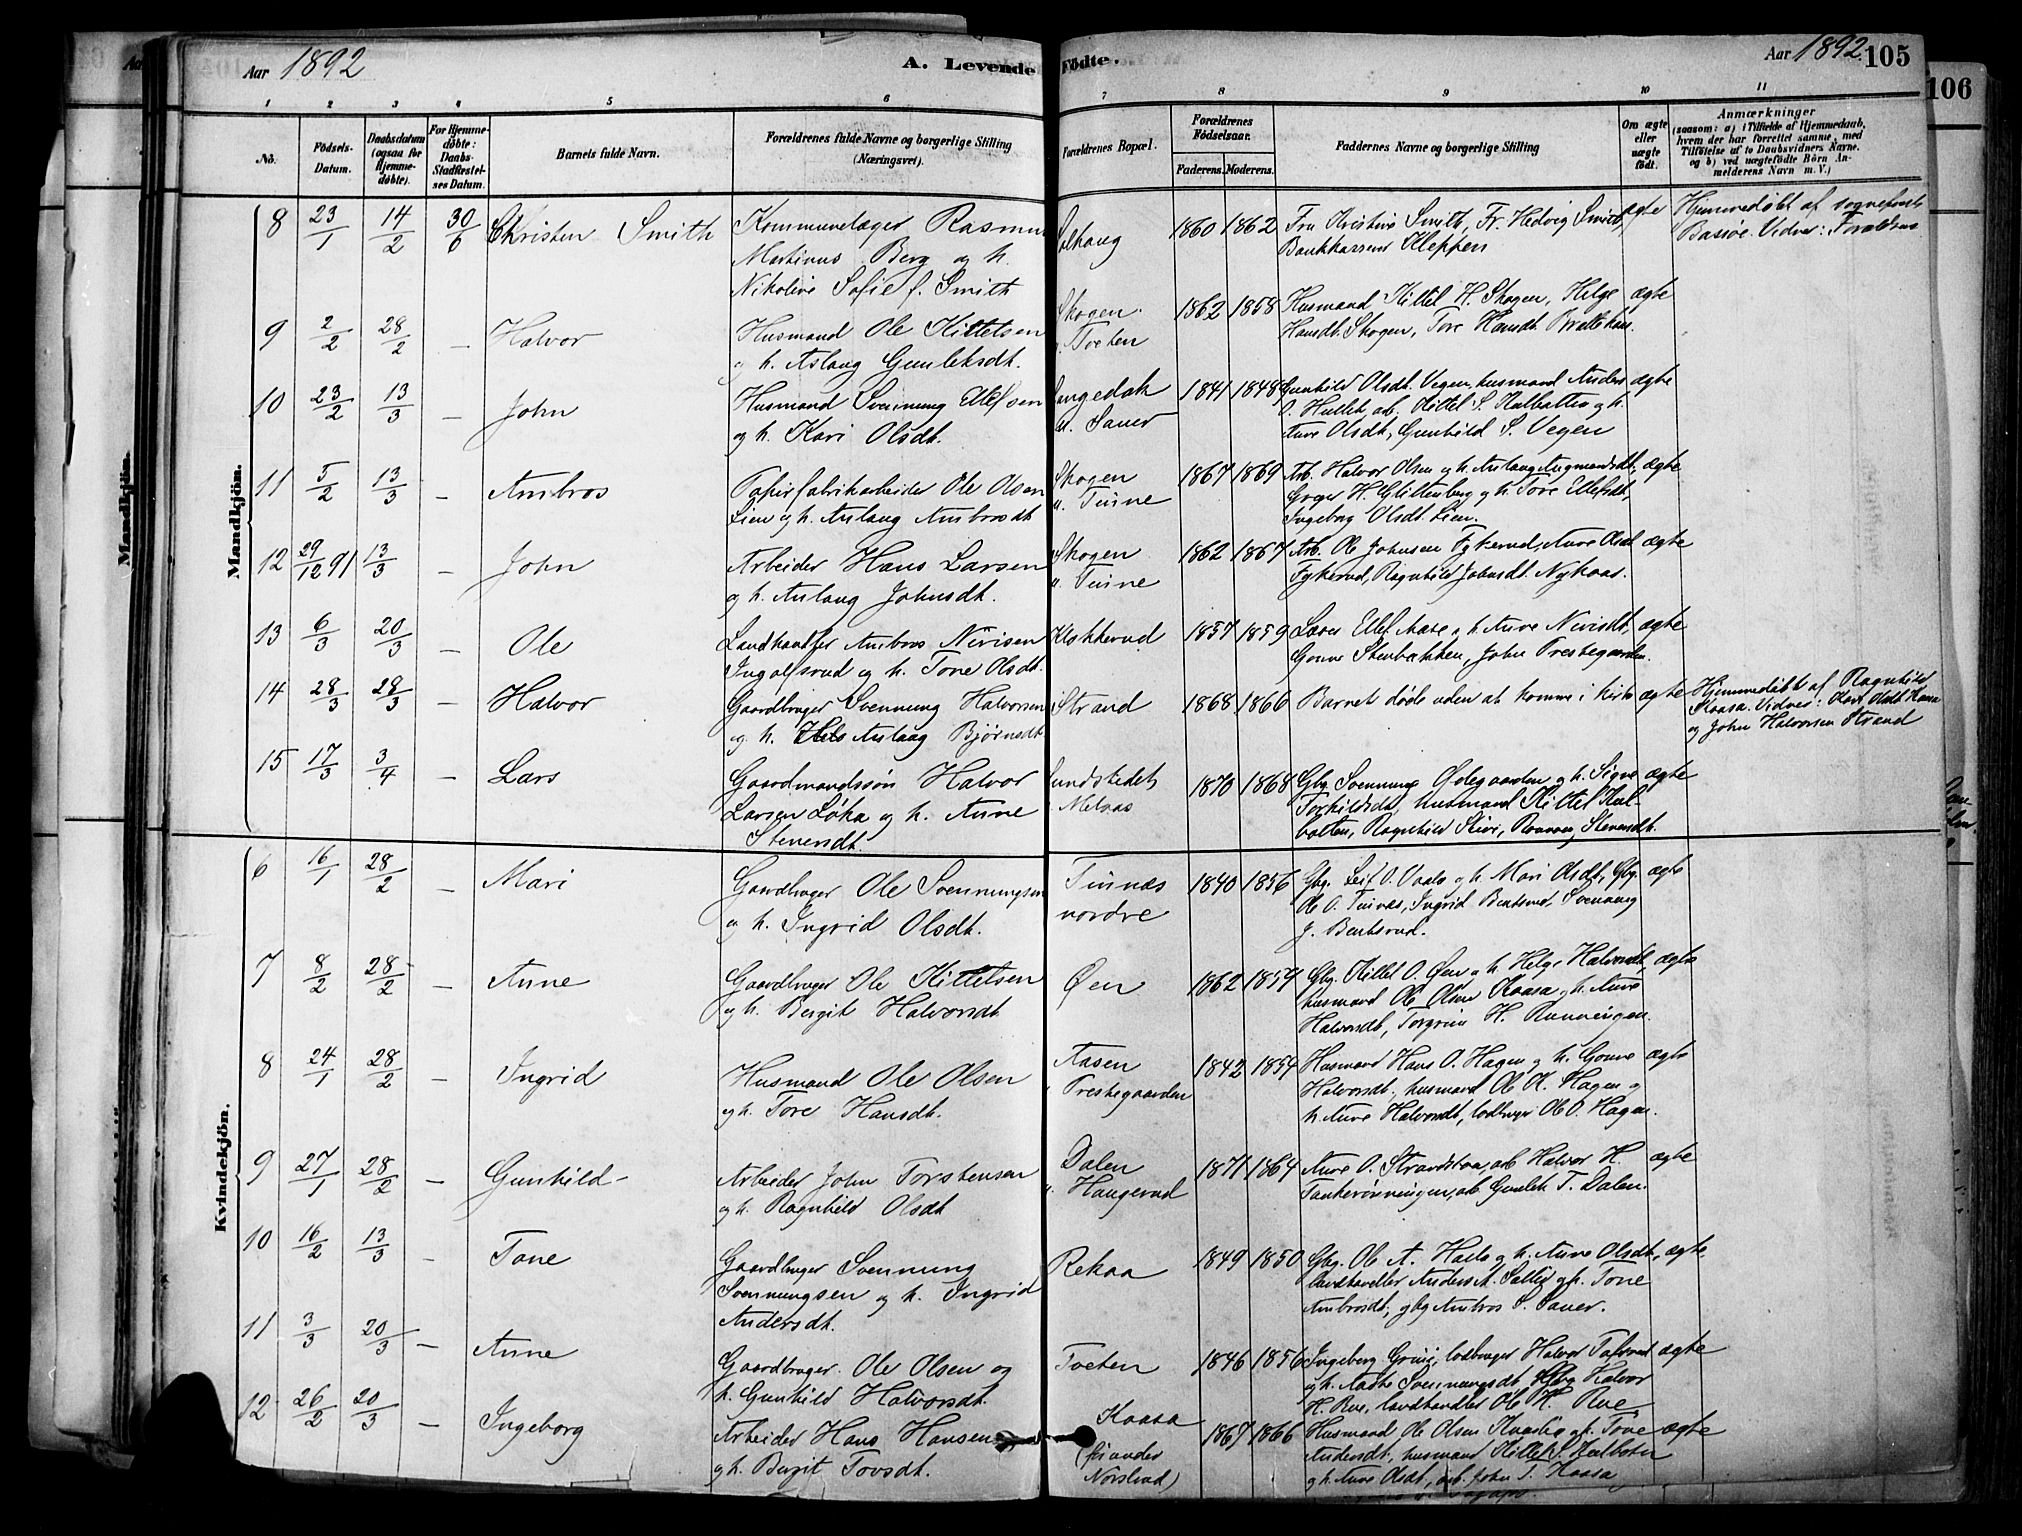 Aar 1892
A. Levende Fødte.
Aar 1892. 105
106
1 2 3 4 5 6 7 8 9 10 11
No.
Fødsels-Datum.
Daabsdatum (ogsaa for Hjemme-døbte).
For Hjemme-døbte: Daabs-Stadfæstel-ses Datum.
Barnets fulde Navn.
Forældrenes fulde Navne og borgerlige Stilling (Næringsvei).
Forældrenes Bopæl.
Forældrenes Fødselsaar.
Faderens. Moderens.
Faddernes Navne og borgerlige Stilling
Om ægte eller uægte født.
Anmærkninger
(saasom: a) i Tilfælde af Hjemmedaab,
hvem der har forrettet samme, med
Tilføielse af to Daabsvidners Navne,
og b) ved uægtefødte Børn An-
melderens Navn m. V.)
Mandkjön.
8 23/1 14/2 30/6 Christen Smith
Kommunelæger Rasmus
Martinus Berg og h.
Nikoline Sofie f. Smith
Solhaug 1860 1862
Fru Kristine Smith, Fr. Hedvig Smith,
Bankkasserer Kleppen
ægte
Hjemmedøbt af sognepræst
Bassøe. Vidner: Forældrene
9 2/2 28/2 – Halvor
Husmand Ole Kittelsen
og h. Aslaug Gunleksdt.
Skogen
Tveten 1862 1858
Husmand Kittel H. Skogen, Helge
Hansdt. Skogen, Tore Hansdt.
ægte
10 23/2 13/3 – John
Husmand Svennung Ellefsen
og h. Kari Olsdt.
Langedak
u. Sauer 1841 1848
Gunhild Olsdt. Vegen, husmand Anders
O. Hullet, arb. Kittel S. Kulbotten og h.
Anne Olsdt, Gunhild S. Vegen
ægte
11 5/2 13/3 – Ambros
Papirfabrikarbeider Ole Olsen
Lien og h. Aslaug Ambrosdt
Skogen
u. Tinne 1867 1869
Arb. Halvor Olsen og h. Aslaug Augmundsdt.,
H. Glittenberg og h. Tore Ellefsdt,
Ingeborg Olsdt. Lien.
ægte
12 29/12 91 13/3 – John
Arbeider Hans Larsen
og h. Aslaug Johnsdt.
Skogen
u. Tinne 1862 1867
Arb. Ole Johnsen Fykerud, Anne Olsdt
Fykerud, Ragnhild Johnsdt. Nykaas.
ægte
13 6/3 20/3 – Ole
Landhandler Ambros Nirisen
Ingolfsrud og h. Tone Olsdt.
Klokkerud 1857 1859
Lærer Ellef Aase, h. Anne Nirisdt,
Gonve Stenbakken, John Prestegaarden.
ægte
14 28/3 28/3 – Halvor
Gaardbruger Svennung Halvorsen
og h. Aslaug Bjørnsdt.
Strand 1868 1866
Barnet døde uden at komme i kirke
ægte
Hjemmedøbt af Ragnhild
Kaasa. Vidner: Olsdt Kaasa
og John Halvorsen Strand
15 17/3 3/4 – Lars
Gaardmandssøn Halvor
Larsen Løka og h. Anne
Stenersdt.
Sundstedet
Melaas 1870 1868
Gbg. Svennung Ødegaarden og h. Signe
Torkildsdt, husmand Kittel Kul-
botten, Ragnhild, Stenersdt.
ægte
Kvindekjön.
6 16/1 28/2 – Mari
Gaardbruger Ole Svennungsen
og h. Ingrid Olsdt.
Tinnæs
nordre 1840 1856
Gbg. Leif O. Vaala og h. Mari Olsdt, Gbg.
Ole O. Tinnæs, Ingrid Bentsrud, Svennung
J. Bentsrud.
ægte
7 8/2 28/2 – Anne
Gaardbruger Ole Kittelsen
og h. Bergit Halvorsdt
Øen 1862 1859
Gbg. Kittel O. Øen og h. Helge Halvorsdt,
husmand Ole Olsen Kaasa og h. Anne
Halvorsdt, Torgrim H. Rønningen.
ægte
8 24/1 28/2 – Ingrid
Husmand Ole Olsen
og h. Tore Hansdt.
Aasen
Prestegaarden 1842 1854
Husmand Hans O. Hagen og h. Gonve
Halvorsdt., husmand Ole H. Hagen og
h. Anne Halvorsdt, lodbruger Ole O. Hagen.
ægte
9 27/1 28/2 – Gunhild
Arbeider John Torstensen
og h. Ragnhild Olsdt
Dalen
u. Haugerud 1871 1864
Anne O. Strandstoa, arb Halvor H.
Tankerønningen, arb Gunlek T. Dalen.
ægte
10 16/2 13/3 – Tone
Gaardbruger Svennung
Svennungsen og h. Ingrid
Andersdt.
Rekaa 1849 1850
Gbg. Ole A. og h. Anne Olsdt.,
landhandler Anders A. og h. Tone
Ambrosdt, gbg Ambros S. Sauer.
ægte
11 3/3 20/3 – Anne
Gaardbruger Ole Olsen og
h. Gunhild Halvorsdt.
Tveten 1846 1856
Ingeborg Grini, lodbruger Halvor
og h. Aaste Svennungsdt Gbg Halvor
H. Rue, landhandler Ole H. Rue
ægte
12 26/2 20/3 – Ingeborg
Arbeider Hans Hansen
og h. Bergit Tovsdt.
Kaasa
(u. under
Norslud) 1867 1866
Husmand Ole Olsen og h. Tone
Andersdt., husmand Kittel S. Kulboten
og h. Anne Olsdt, arb. John S. Kaasa
ægte